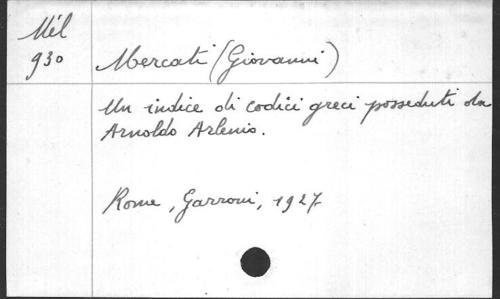 Mél
930
Mercati (Giovanni)
Un indice di codici greci posseduti da
Arnoldo Arlenio.
Rome, Garroni, 1927